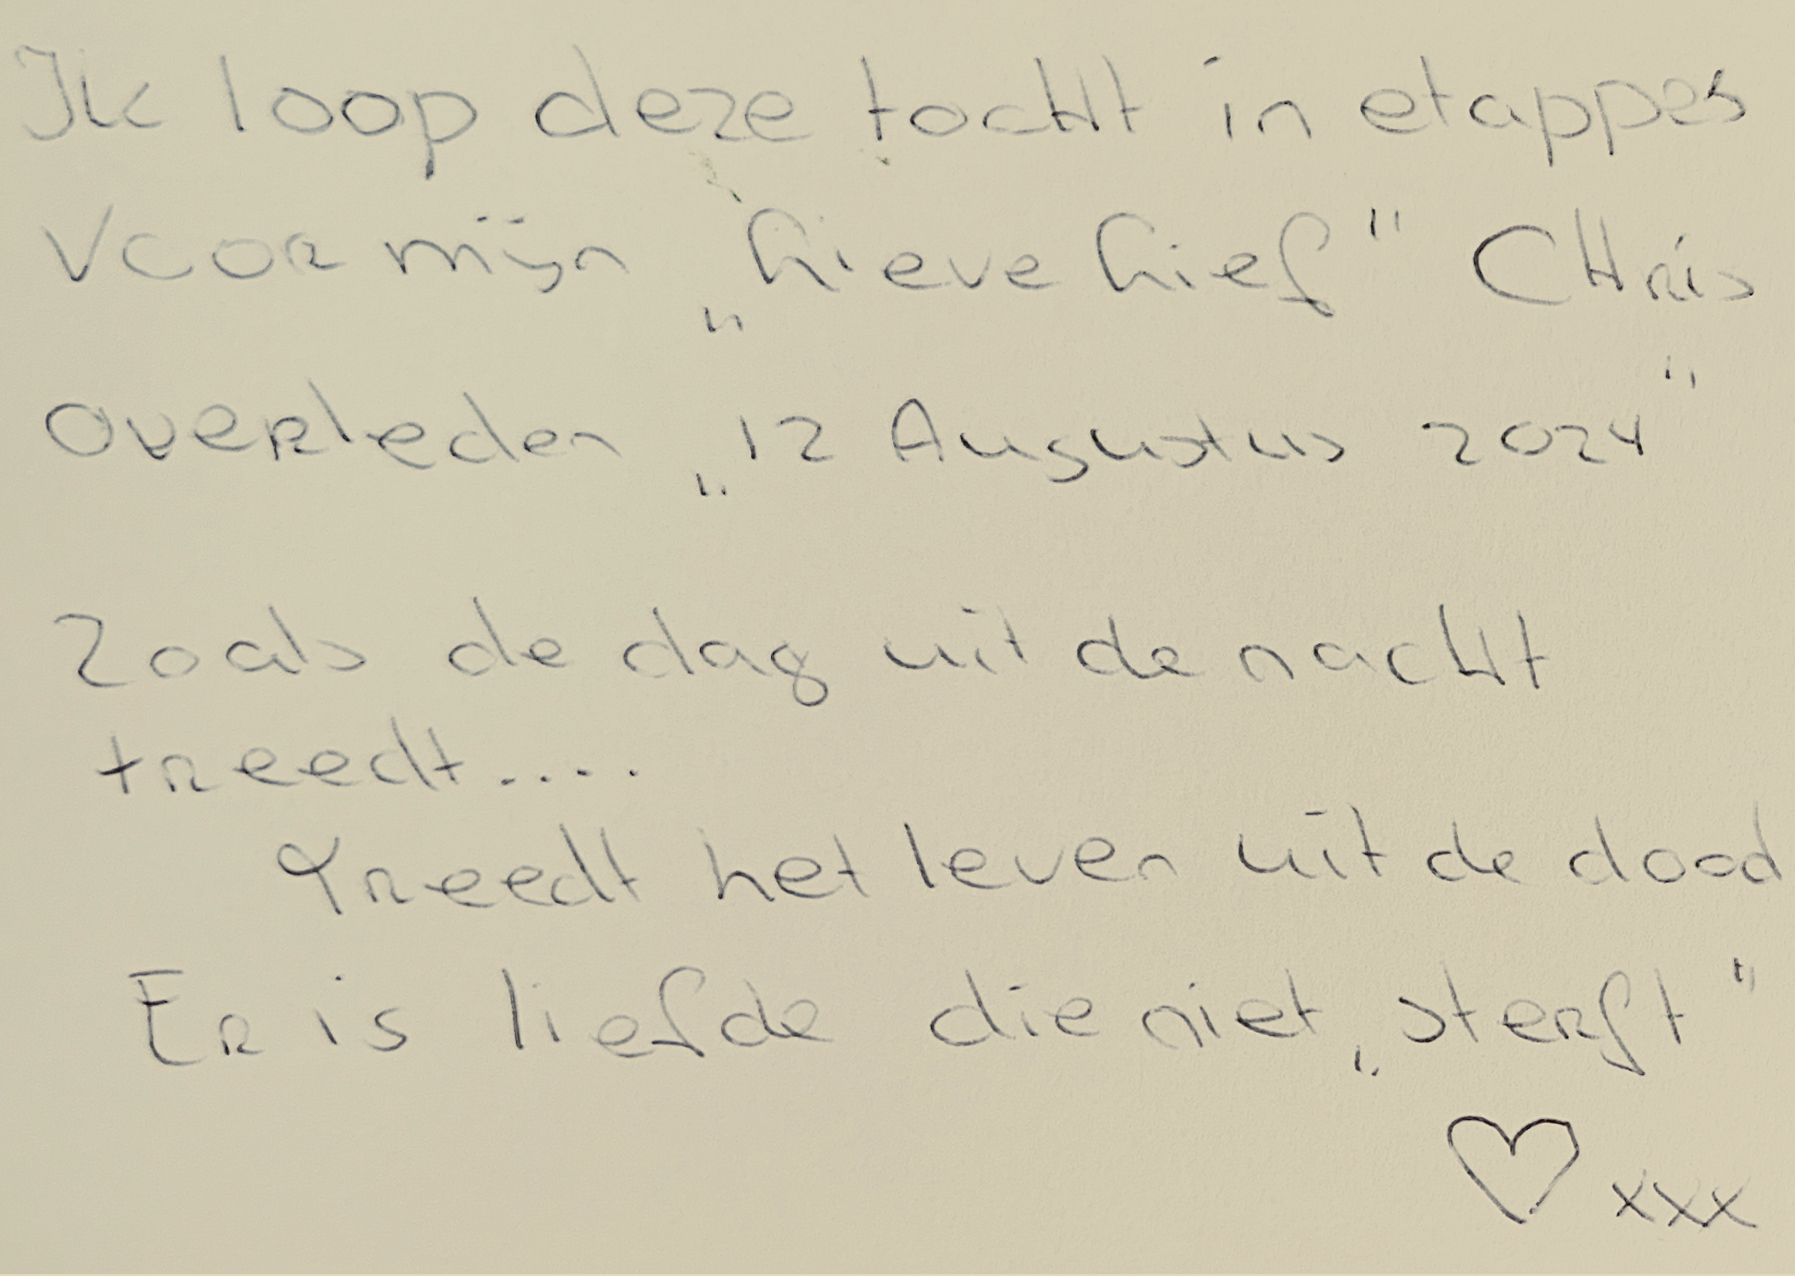 Ik loop deze tocht in etappes
voor mijn „lieve lief" CHRis
overleden „12 Augustus 2024"
Zoals de dag uit de nacht
treedt....
Treedt het leven uit de dood
Er is liefde die niet „sterft"
♡ xxx